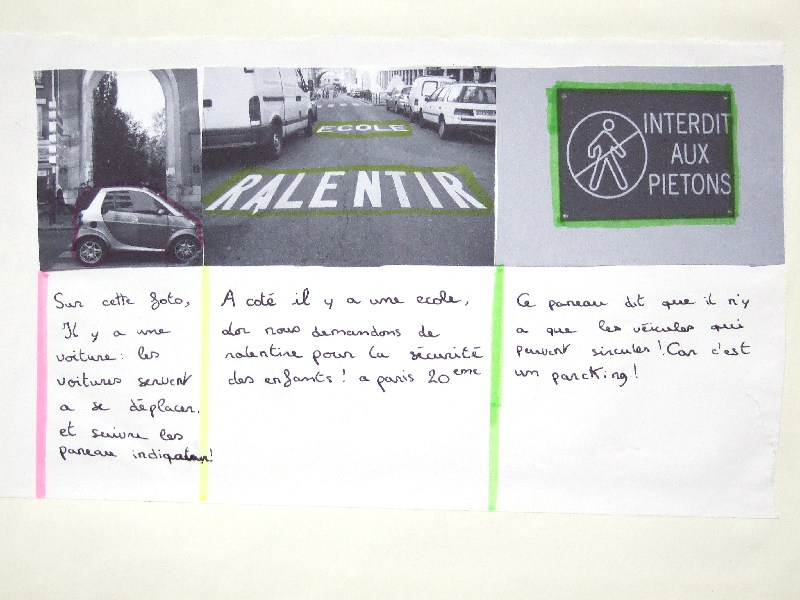 ECOLE
RALENTIR
INTERDIT
AUX
PIETONS
Sur cette foto,
Il y a une
voiture: les
voitures servent
a se déplacer.
et suivre les
paneau indiquateur!
A coté il y a une ecole,
dor nous demandons de
ralentire pour la sécurité
des enfants! a paris 20eme
Ce paneau dit que il n'y
a que les véicules qui
peuvent sirculer! Car c'est
un parcking!